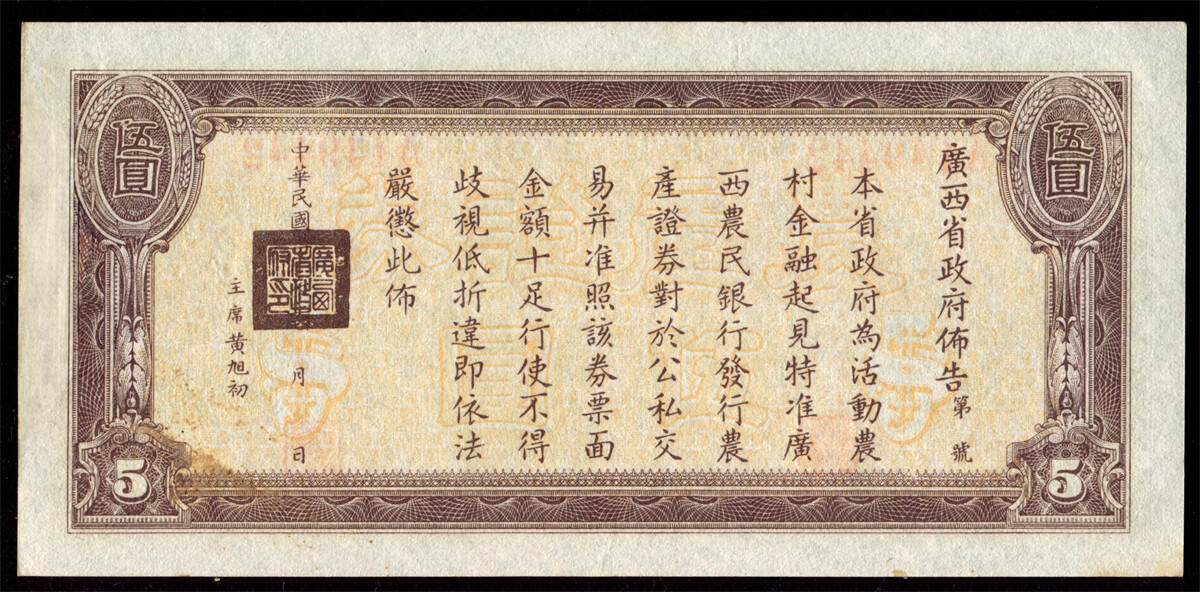 廣西省政府佈告第 號
本省政府為活動農
村金融起見特准廣
西農民銀行發行農
產證券對於公私交
易并准照該券票面
金額十足行使不得
歧視低折違即依法
嚴懲此佈
中華民國 月 日
廣西省政府印
主席黄旭初
伍圓
伍圓
5
5